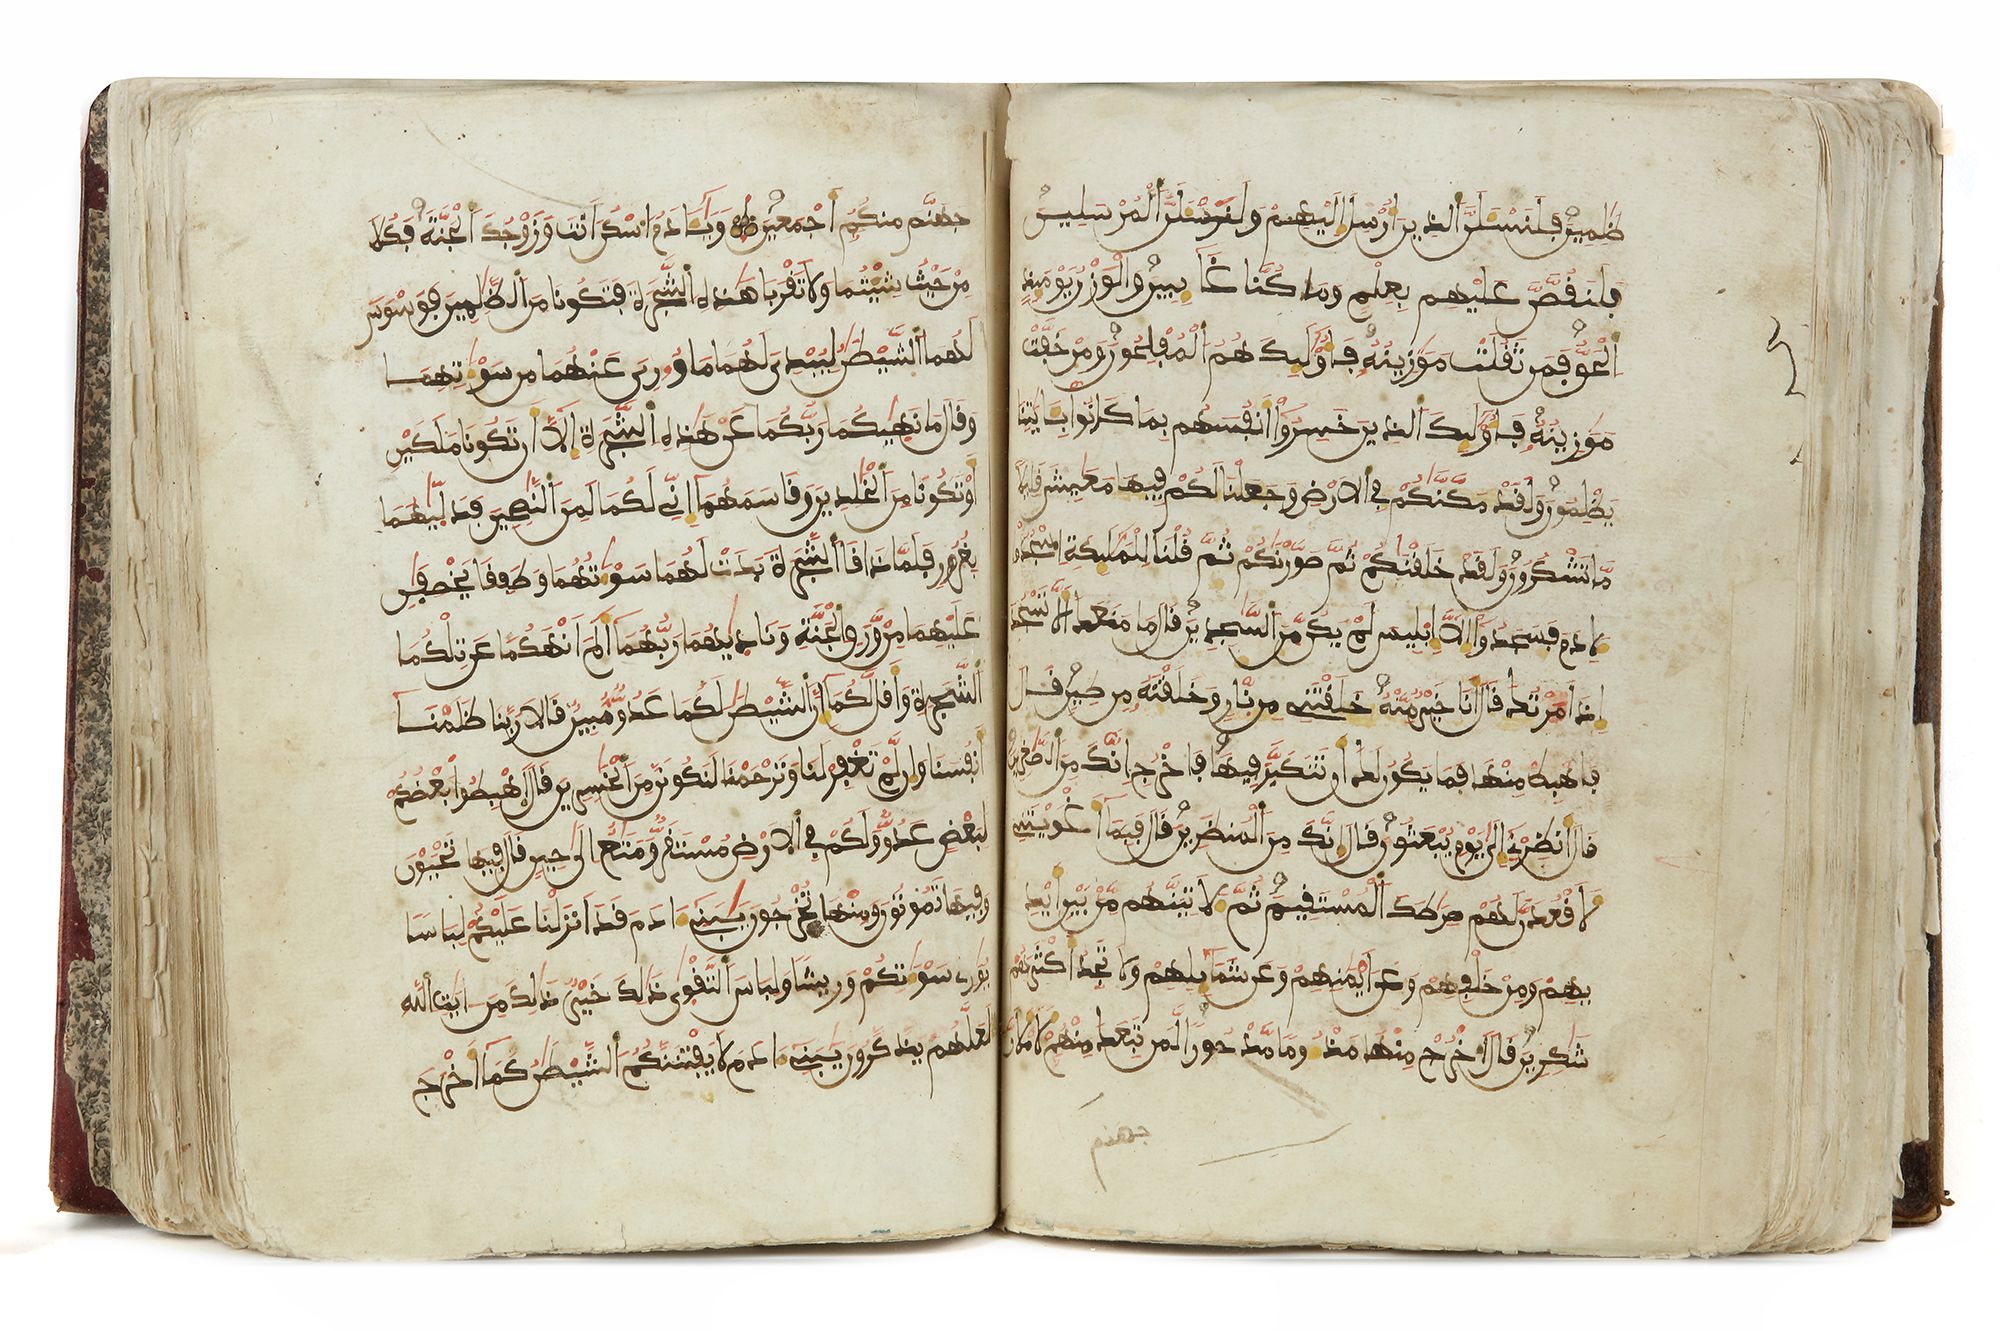 ظلمين فلنسئلن الذين أرسل إليهم ولنسئلن المرسلين
فلنقصن عليهم بعلم وما كنا غايبين والوزن يومئذ
الحق فمن ثقلت موزينه فأولئك هم المفلحون ومن خفت
موزينه فأولئك الذين خسروا أنفسهم بما كانوا بئايتنا
يظلمون ولقد مكنكم في الأرض وجعلنا لكم فيها معيش قليلا
ما تشكرون ولقد خلقنكم ثم صورنكم ثم قلنا للمليكة اسجدوا
ءلادم فسجدوا إلا إبليس لم يكن من السجدين قال ما منعك ألا تسجد
إذ أمرتك قال أنا خير منه خلقتني من نار وخلقته من طين قال
فاهبط منها فما يكون لك أن تتكبر فيها فاخرج إنك من الصغرين
قال أنظرني إلى يوم يبعثون قال إنك من المنظرين قال فبما أغويتني
لأقعدن لهم صرطك المستقيم ثم ءلاتينهم من بين أيد
يهم ومن خلفهم وعن أيمنهم وعن شمايلهم ولا تجد أكثرهم
شكرين قال اخرج منها مذءوما مدحورا لمن تبعك منهم لأملأن
جهنم
جهنم منكم أجمعين ويئادم اسكن أنت وزوجك الجنة فكلا
من حيث شيتما ولا تقربا هذه الشجرة فتكونا من الظلمين فوسوس
لهما الشيطن ليبدي لهما ما وري عنهما من سوءتهما
وقال ما نهيكما ربكما عن هذه الشجرة إلا أن تكونا ملكين
أو تكونا من الخلدين وقاسمهما إني لكما لمن النصحين فدليهما
بغرور فلما ذاقا الشجرة بدت لهما سوءتهما وطفقا يخصفن
عليهما من ورق الجنة وناديهما ربهما ألم أنهكما عن تلكما
الشجرة وأقل لكما إن الشيطن لكما عدو مبين قالا ربنا ظلمنا
أنفسنا وإن لم تغفر لنا وترحمنا لنكونن من الخسرين قال اهبطوا بعضكم
لبعض عدو ولكم في الأرض مستقر ومتع إلى حين قال فيها تحيون
وفيها تموتون ومنها تخرجون يبني ءادم قد أنزلنا عليكم لباسا
يوري سوءتكم وريشا ولباس التقوى ذلك خير ذلك من ءايت الله
لعلهم يذكرون يبني ءادم لا يفتننكم الشيطن كما أخرج